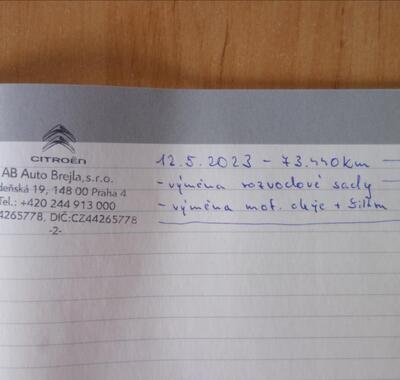 CITROËN
AB Auto Brejla, s.r.o.
deňská 19, 148 00 Praha 4
Tel.: +420 244 913 000
4265778, DIČ:CZ44265778
-2-
12.5.2023 - 73.440km
- výměna rozvodové sady
- výměna mot. oleje + filtrů